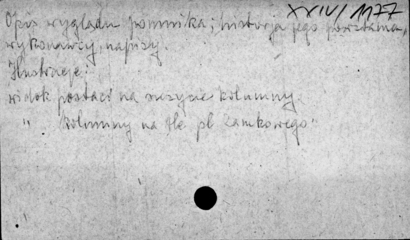 XXIV/1177
Opis wyglądu pomnika; historja jego powstania,
wykonawcy, napisy.
Ilustracje:
widok postaci na szczycie kolumny.
" kolumny na tle pl. Zamkowego.